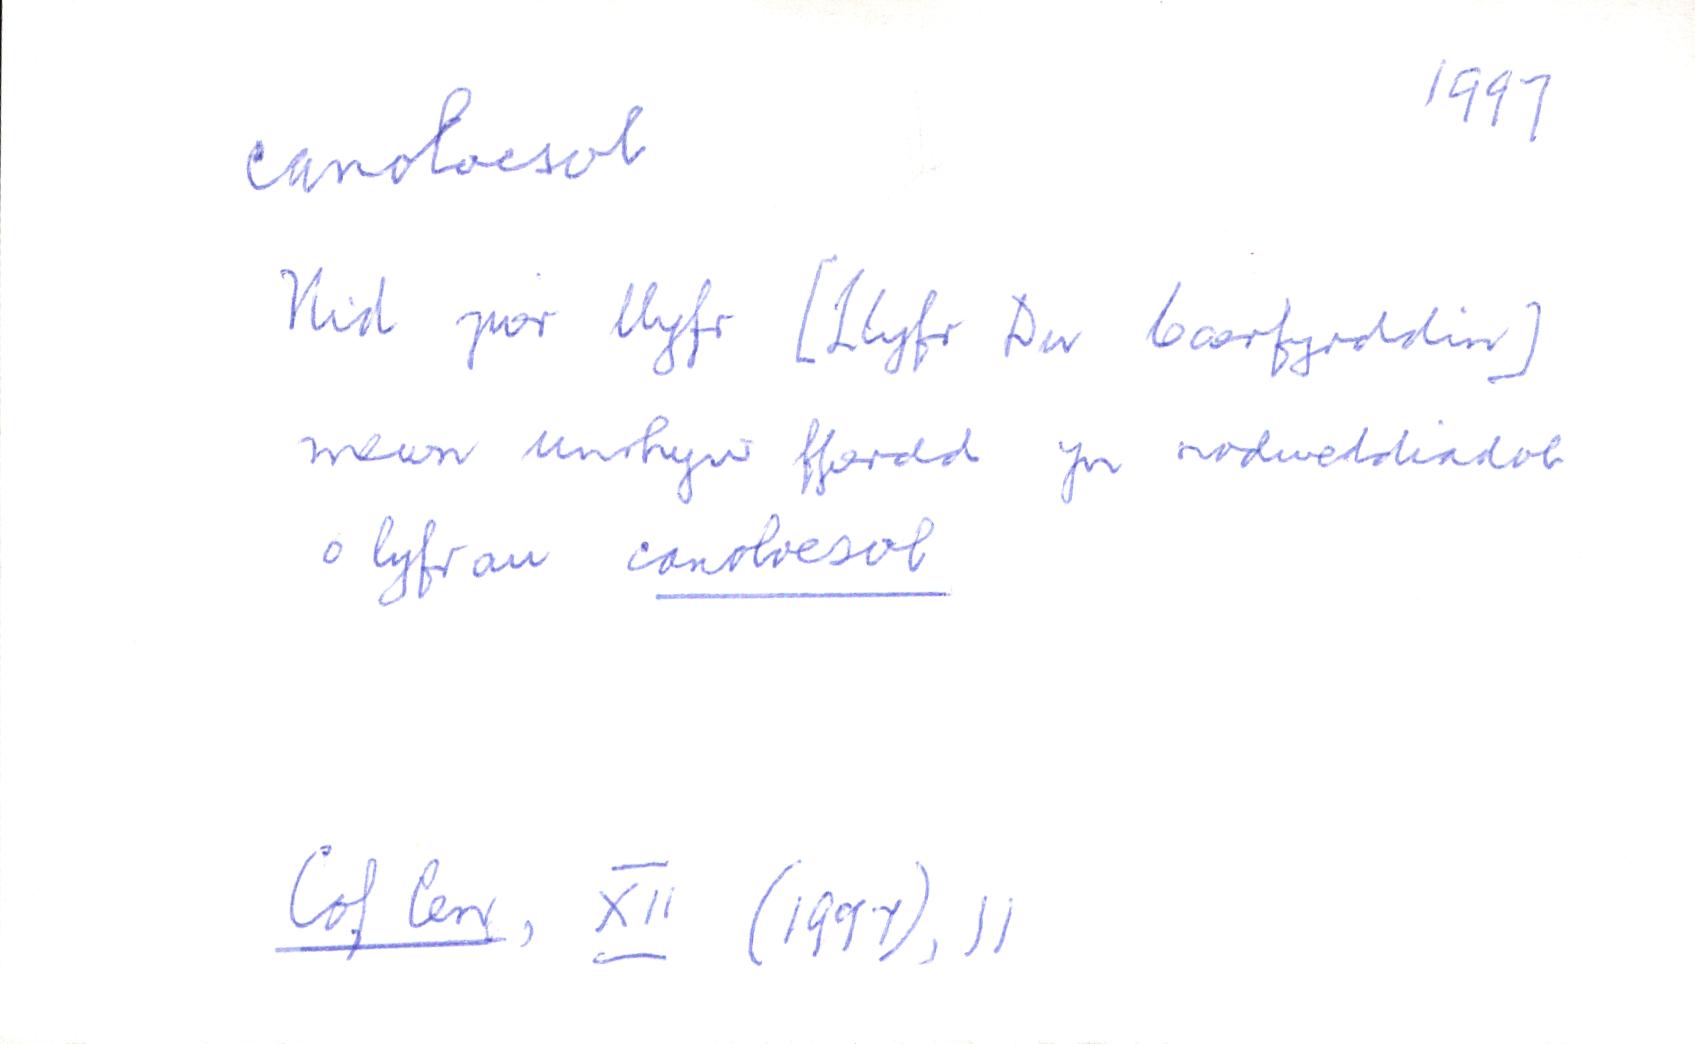 1997
canoloesol
Nid yw'r llyfr [Llyfr Du Caerfyrddin]
mewn unrhyw ffordd yn nodweddiadol
o lyfrau canoloesol
Cof Cen, XII (1997), 11